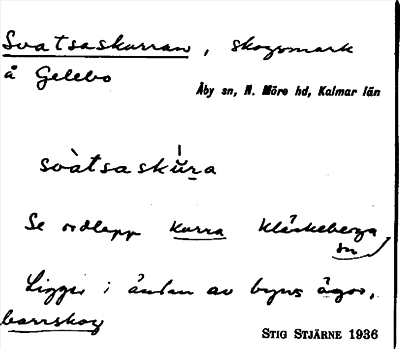 Svatsaskurran, skogsmark
å Gelebo
Åby sn, N. Möre hd, Kalmar län
svàtsaskúra
Se ordlapp kurra Kläckeberga
sn
Ligger i änden av byns ägor,
barrskog
STIG STJÄRNE 1936